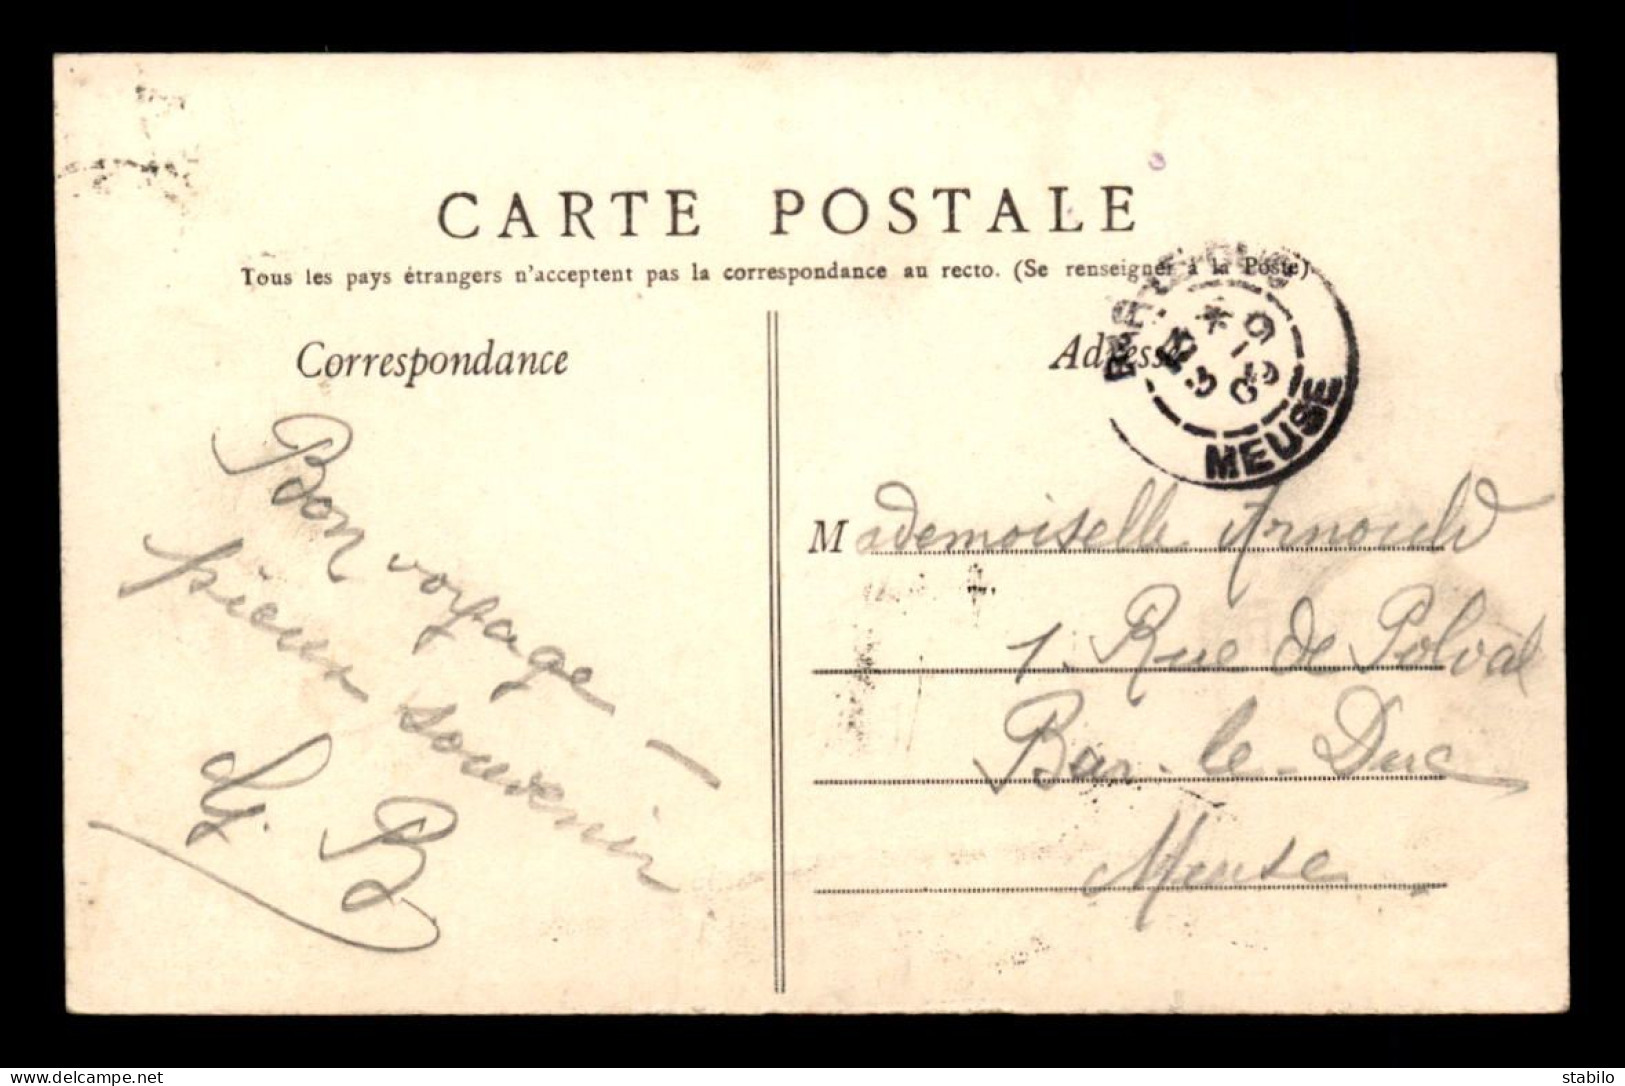 CARTE POSTALE
Tous les pays étrangers n'acceptent pas la correspondance au recto. (Se renseigner à la Poste)
Correspondance
Bon voyage –
pieux souvenir
G. B
Adresse
BAR-LE-DUC
MEUSE
Mademoiselle Arnould
1, Rue de Polval
Bar-le-Duc
Meuse
www.delcampe.net
stabilo